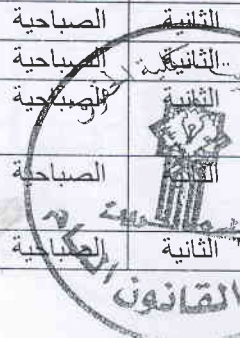 الثانية الصباحية
الثانية الصباحية
الثانية الصباحية
الثانية الصباحية
الثانية الصباحية
القانون